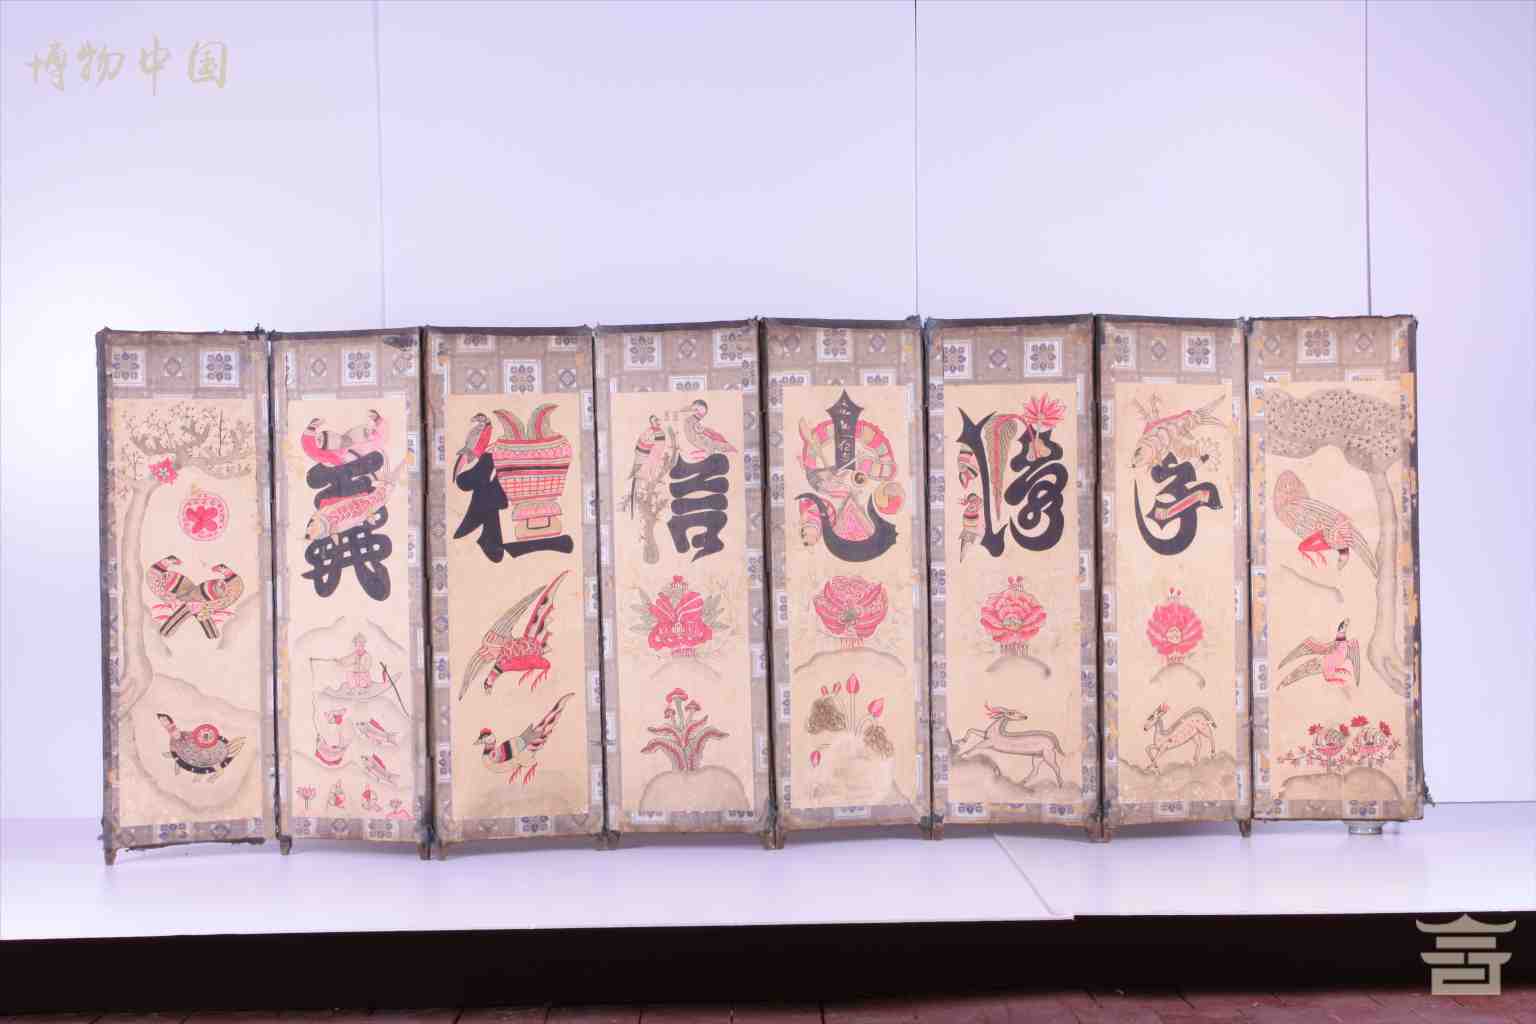 博物中国
孝
悌
忠
信
禮
義